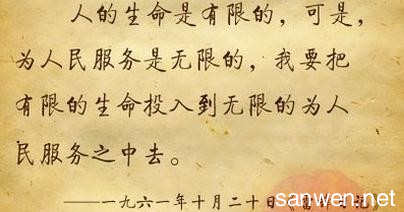 人的生命是有限的，可是，
为人民服务是无限的，我要把
有限的生命投入到无限的为人
民服务之中去。
——一九六一年十月二十日
sanwen.net